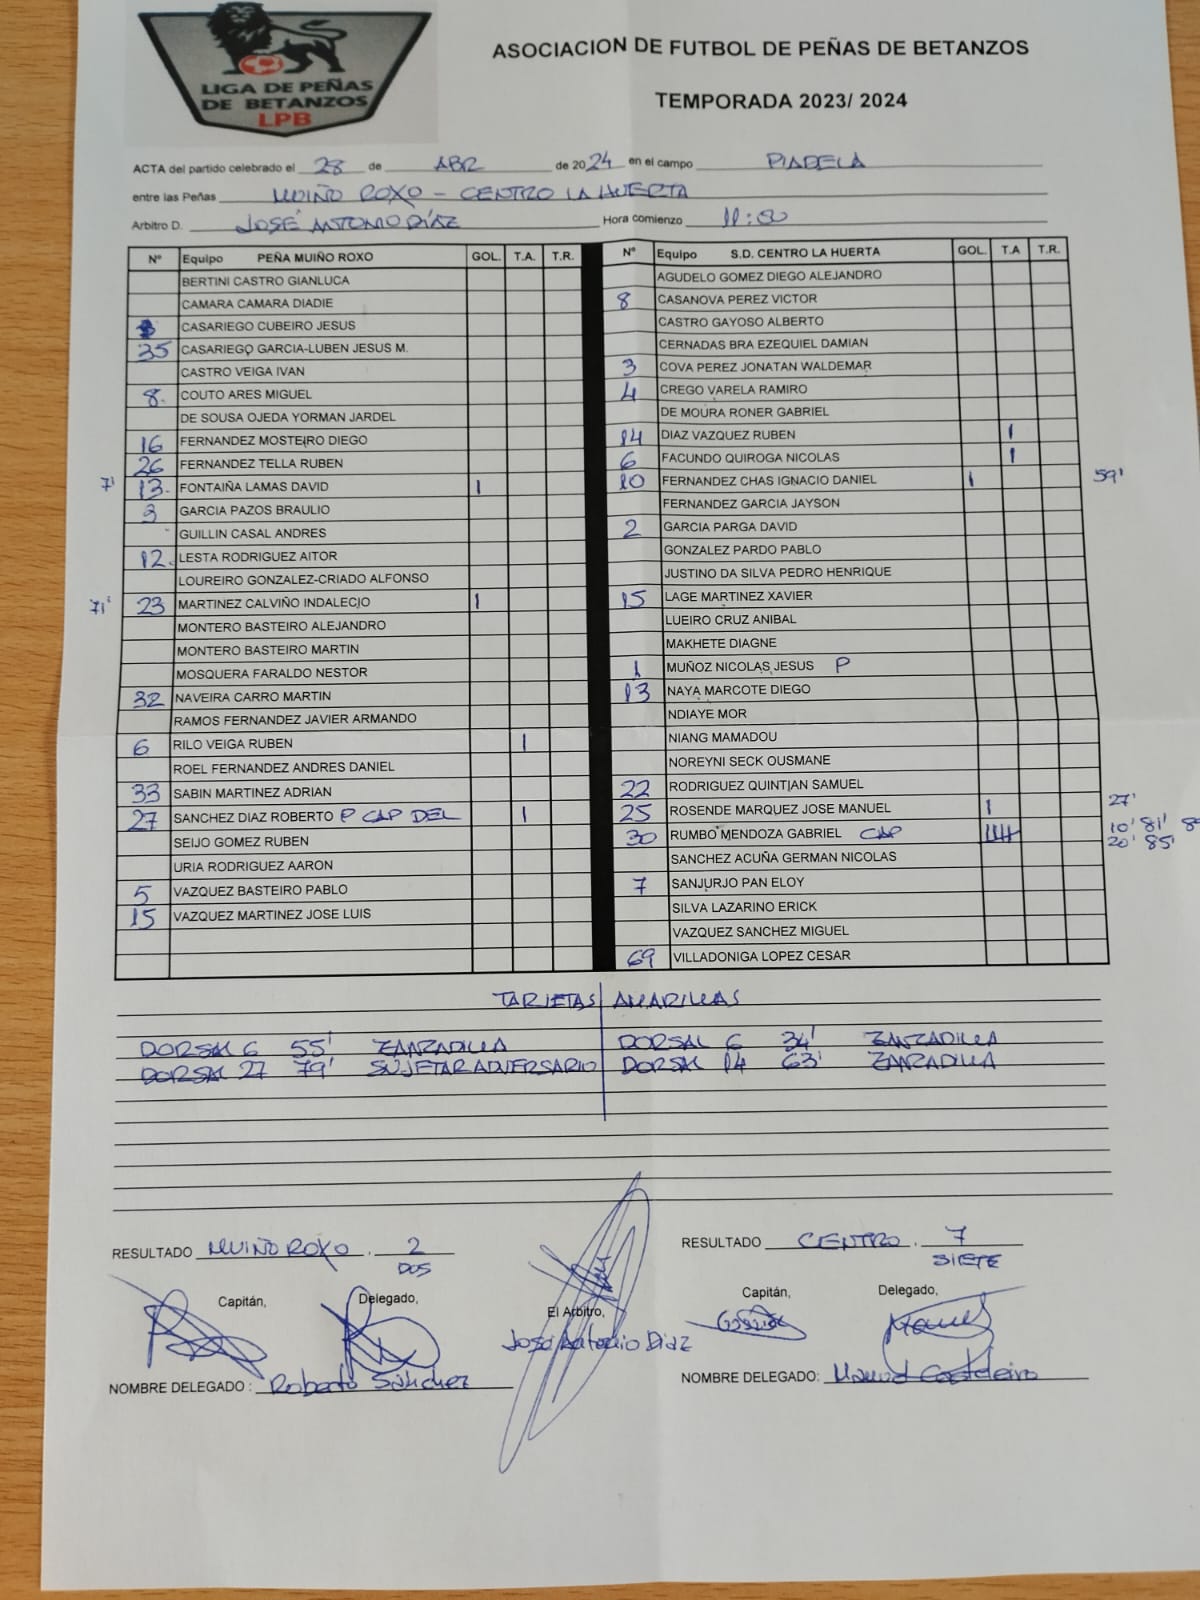 LIGA DE PEÑAS
DE BETANZOS
LPB
ASOCIACION DE FUTBOL DE PEÑAS DE BETANZOS
TEMPORADA 2023/ 2024
ACTA del partido celebrado el 28 de ABR de 2024 en el campo PIADELA
entre las Peñas MUIÑO ROXO - CENTRO LA HUERTA
Arbitro D. JOSÉ ANTONIO DÍAZ Hora comienzo 11:00
Nº Equipo PEÑA MUIÑO ROXO GOL. T.A. T.R.
BERTINI CASTRO GIANLUCA
CAMARA CAMARA DIADIE
CASARIEGO CUBEIRO JESUS
35 CASARIEGO GARCIA-LUBEN JESUS M.
CASTRO VEIGA IVAN
8. COUTO ARES MIGUEL
DE SOUSA OJEDA YORMAN JARDEL
16 FERNANDEZ MOSTEIRO DIEGO
26 FERNANDEZ TELLA RUBEN
7' 13. FONTAIÑA LAMAS DAVID I
3 GARCIA PAZOS BRAULIO
GUILLIN CASAL ANDRES
12. LESTA RODRIGUEZ AITOR
LOUREIRO GONZALEZ-CRIADO ALFONSO
71' 23 MARTINEZ CALVIÑO INDALECIO I
MONTERO BASTEIRO ALEJANDRO
MONTERO BASTEIRO MARTIN
MOSQUERA FARALDO NESTOR
32 NAVEIRA CARRO MARTIN
RAMOS FERNANDEZ JAVIER ARMANDO
6 RILO VEIGA RUBEN I
ROEL FERNANDEZ ANDRES DANIEL
33 SABIN MARTINEZ ADRIAN
27 SANCHEZ DIAZ ROBERTO P CAP DEL I
SEIJO GOMEZ RUBEN
URIA RODRIGUEZ AARON
5 VAZQUEZ BASTEIRO PABLO
15 VAZQUEZ MARTINEZ JOSE LUIS
Nº Equipo S.D. CENTRO LA HUERTA GOL. T.A T.R.
AGUDELO GOMEZ DIEGO ALEJANDRO
8 CASANOVA PEREZ VICTOR
CASTRO GAYOSO ALBERTO
CERNADAS BRA EZEQUIEL DAMIAN
3 COVA PEREZ JONATAN WALDEMAR
4 CREGO VARELA RAMIRO
DE MOURA RONER GABRIEL
14 DIAZ VAZQUEZ RUBEN I
6 FACUNDO QUIROGA NICOLAS I
10 FERNANDEZ CHAS IGNACIO DANIEL I 59'
FERNANDEZ GARCIA JAYSON
2 GARCIA PARGA DAVID
GONZALEZ PARDO PABLO
JUSTINO DA SILVA PEDRO HENRIQUE
15 LAGE MARTINEZ XAVIER
LUEIRO CRUZ ANIBAL
MAKHETE DIAGNE
1 MUÑOZ NICOLAS JESUS P
13 NAYA MARCOTE DIEGO
NDIAYE MOR
NIANG MAMADOU
NOREYNI SECK OUSMANE
22 RODRIGUEZ QUINTIAN SAMUEL
25 ROSENDE MARQUEZ JOSE MANUEL I 27'
30 RUMBO MENDOZA GABRIEL CAP IIII 10' 81'
20' 85'
SANCHEZ ACUÑA GERMAN NICOLAS
7 SANJURJO PAN ELOY
SILVA LAZARINO ERICK
VAZQUEZ SANCHEZ MIGUEL
69 VILLADONIGA LOPEZ CESAR
TARJETAS AMARILLAS
DORSAL 6 55' ZANZADILLA
DORSAL 27 79' SUJETAR ADVERSARIO
DORSAL 6 34' ZANZADILLA
DORSAL 14 63' ZANZADILLA
RESULTADO MUIÑO ROXO . 2
DOS
RESULTADO CENTRO . 7
SIETE
Capitán, Delegado, El Arbitro, Capitán, Delegado,
Jose Antonio Diaz
Manuel
NOMBRE DELEGADO : Roberto Sánchez
NOMBRE DELEGADO: Manuel Casteleiro